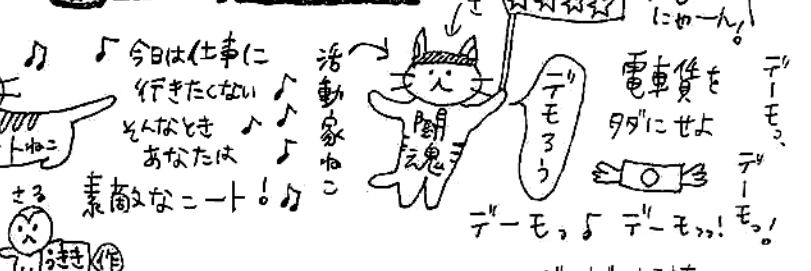 さ
にゃーん!
今日は仕事に
行きたくない
そんなとき
あなたは
素敵なニート!
トねこ
さる
うきき
作
活動家ねこ
闘魂
デモろう
電車賃を
タダにせよ
デーモっ、
デーモっ!
デーモっ♪ デーモっっ!